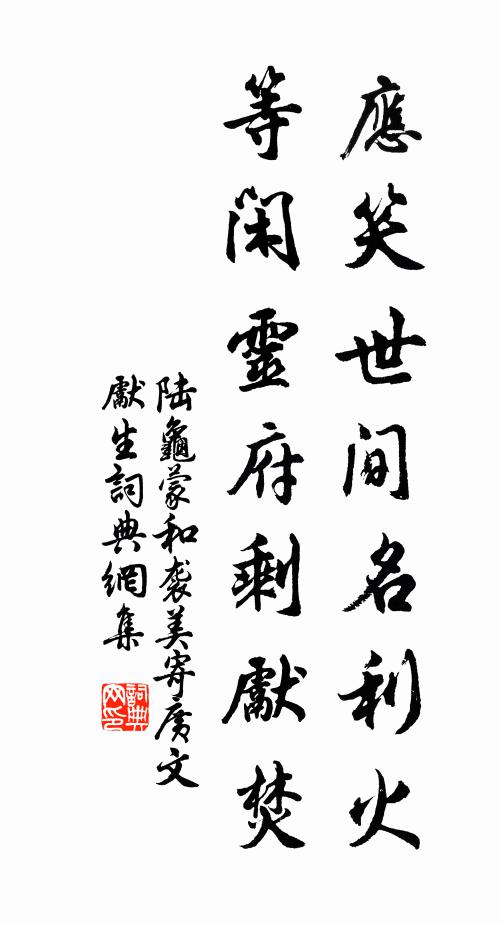 應笑世間名利火
等閑靈府剩獻焚
陆龜蒙和袭美寄廣文
獻生詞典網集
詞典网印